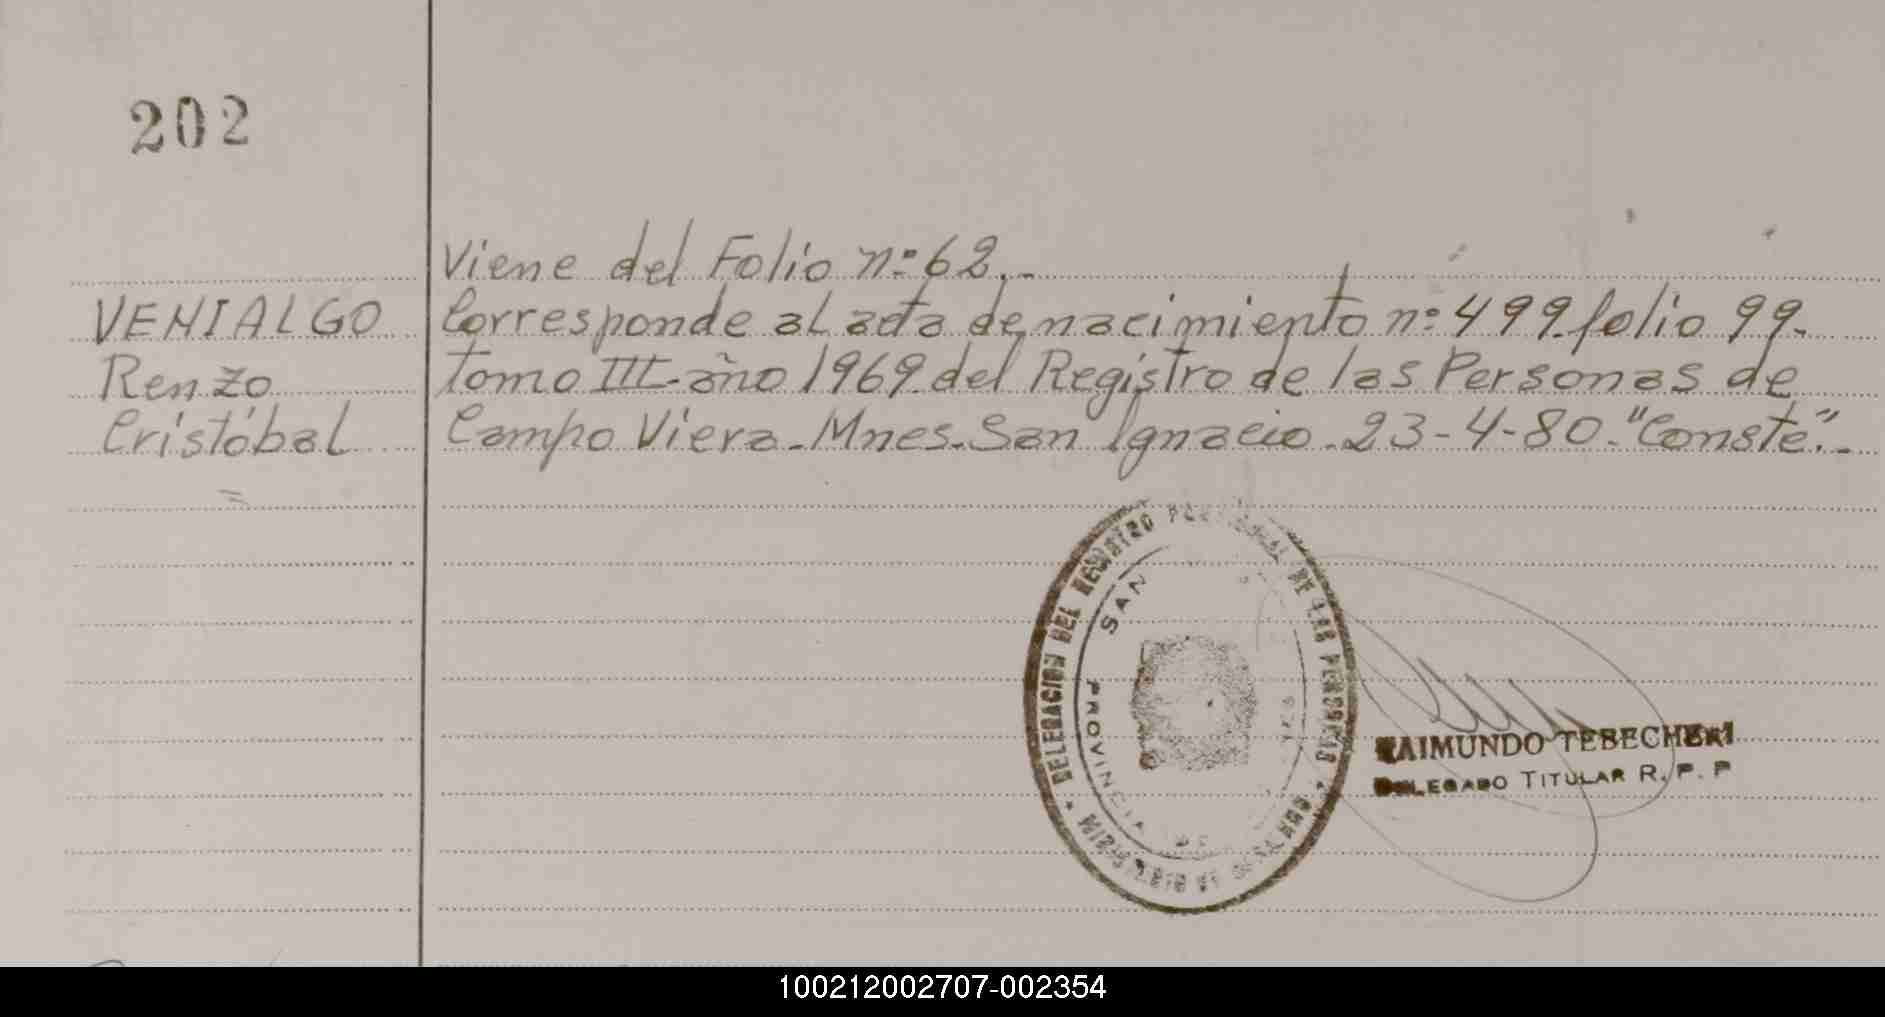 202
Viene del Folio n:º 62.-
VENIALGO Corresponde al acta de nacimiento n:º 499 folio 99-
Renzo tomo III-año 1969 del Registro de las Personas de
Cristóbal Campo Viera-Mnes-San Ignacio-23-4-80-"Conste".-
DELEGACION DEL REGISTRO DE LAS PERSONAS
SAN
PROVINCIA DE
MINISTERIO DE
RAIMUNDO TEBECHERI
DELEGADO TITULAR R. P. P
100212002707-002354